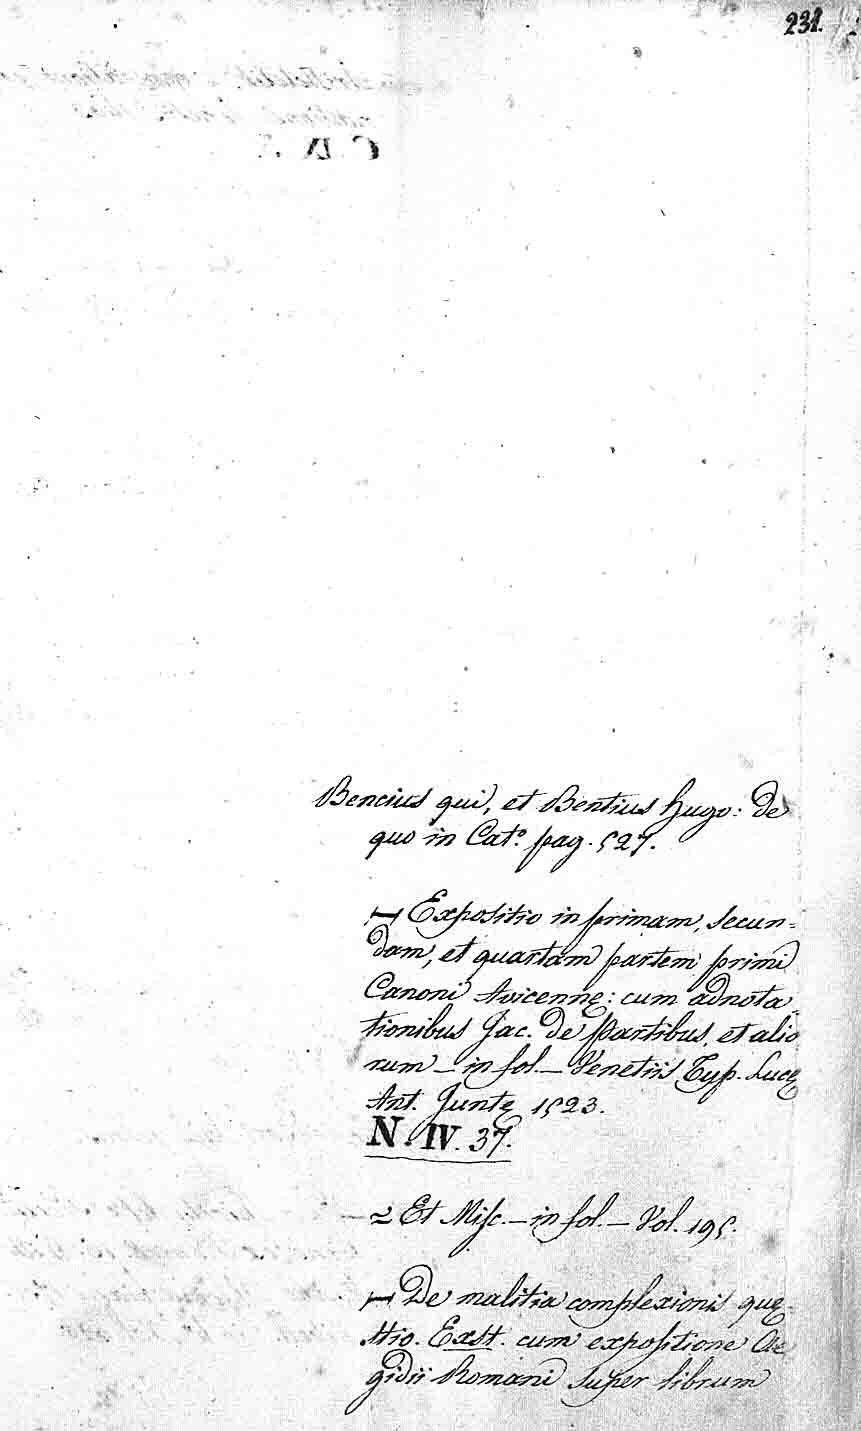 231.
Bencius qui, et Bentius Hugo: de
quo in Cat.º pag. 527.
Expositio in primam, secun=
dam, et quartam partem primi
Canoni Avicennę: cum adnota=
tionibus Jac. de Partibus, et alio
rum – in fol. – Venetiis Typ. Lucę
Ant. Juntę 1523.
N. IV. 37.
2 Et Misc. – in fol. – Vol. 195.
De malitia complexionis quę=
stio. Exst. cum expositione Ae
gidii Romani super librum